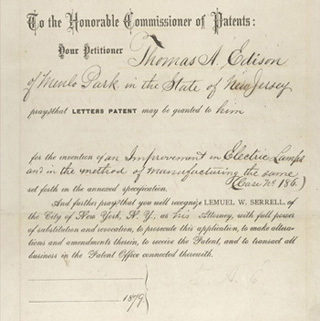 To the Honorable Commissioner of Patents:
Your Petitioner Thomas A. Edison
of Menlo Park in the State of New Jersey
prays that LETTERS PATENT may be granted to him
for the invention of an Improvement in Electric Lamps
and in the method of manufacturing the same
(Case No 186.)
set forth in the annexed specification.
And further prays that you will recognize LEMUEL W. SERRELL, of
the City of New York, N. Y., as his Attorney, with full power
of substitution and revocation, to prosecute this application, to make altera-
tions and amendments therein, to receive the Patent, and to transact all
business in the Patent Office connected therewith.
1879